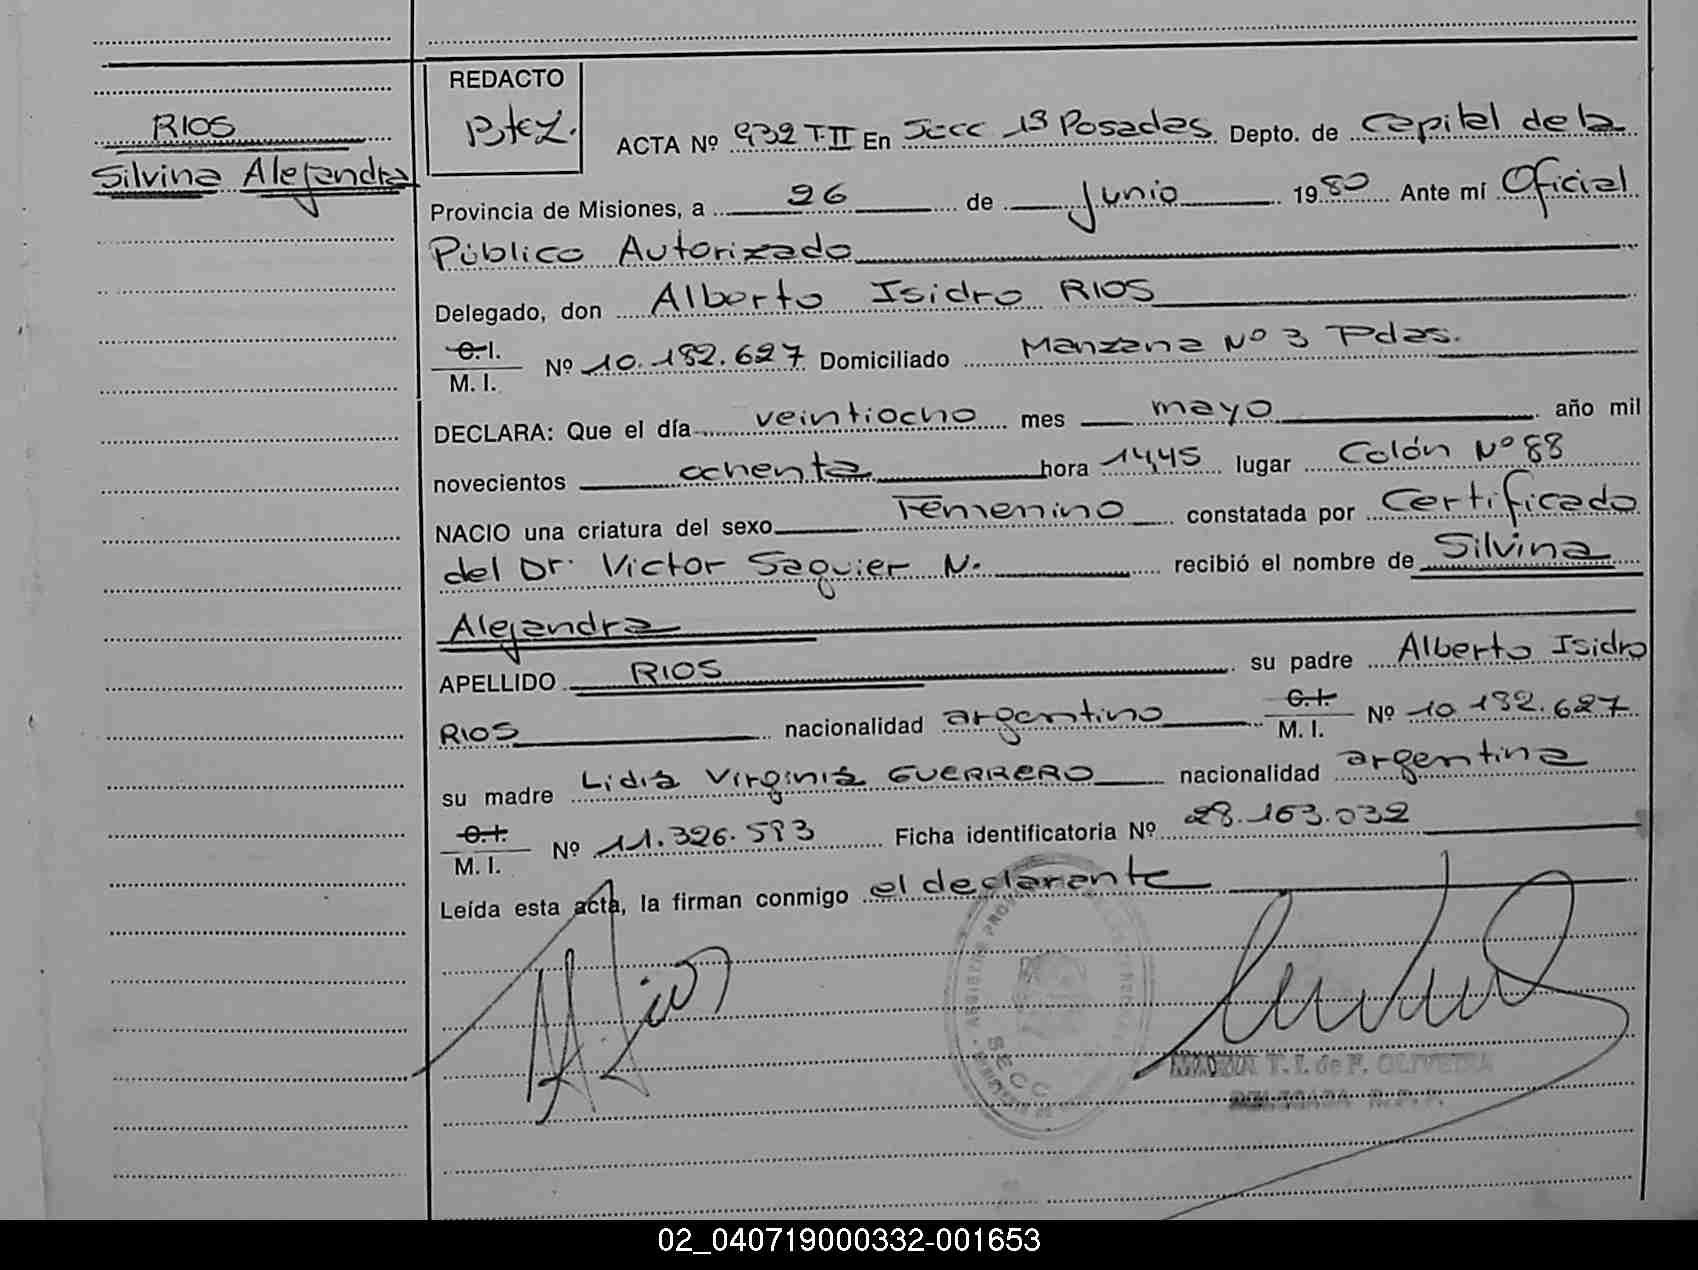 RIOS
Silvina Alejandra
REDACTO
ACTA Nº 932 T.II En Secc 1ª Posadas Depto. de Capital de la
Provincia de Misiones, a 26 de Junio 1980 Ante mí Oficial
Público Autorizado
Delegado, don Alberto Isidro RIOS
C.I.
M. I. Nº 10.182.627 Domiciliado Manzana Nº 3 Pdas.
DECLARA: Que el día veintiocho mes mayo año mil
novecientos ochenta hora 14,45 lugar Colón Nº 88
NACIO una criatura del sexo Femenino constatada por Certificado
del Dr. Victor Saguier N. recibió el nombre de Silvina
Alejandra
APELLIDO RIOS su padre Alberto Isidro
RIOS nacionalidad argentino C.I. M. I. Nº 10.182.627
su madre Lidia Virginia GUERRERO nacionalidad argentina
C.I.
M. I. Nº 11.326.593 Ficha identificatoria Nº 28.163.032
Leída esta acta, la firman conmigo el declarante
SECC
T. I. de F. OLIVEIRA
DELEGADA R.P.P.
02_040719000332-001653